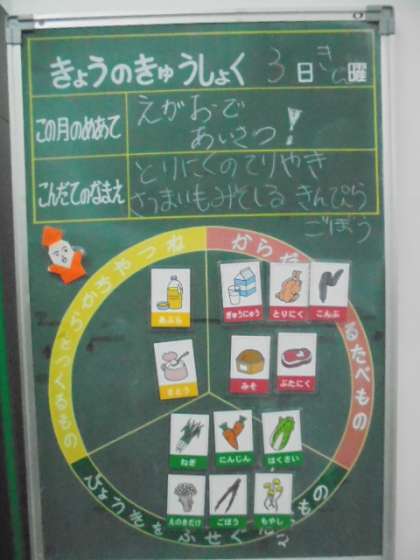 きょうのきゅうしょく 3日 きん曜
この月のめあて
えがおで
あいさつ!
こんだてのなまえ
とりにくのてりやき
さつまいもみそしる きんぴら
ごぼう
ねつやちからをつくるもの
あぶら
さとう
ぎゅうにゅう
とりにく
こんぶ
みそ
ぶたにく
るたべもの
ねぎ
にんじん
はくさい
えのきだけ
ごぼう
もやし
びょうきをふせぐ
もの